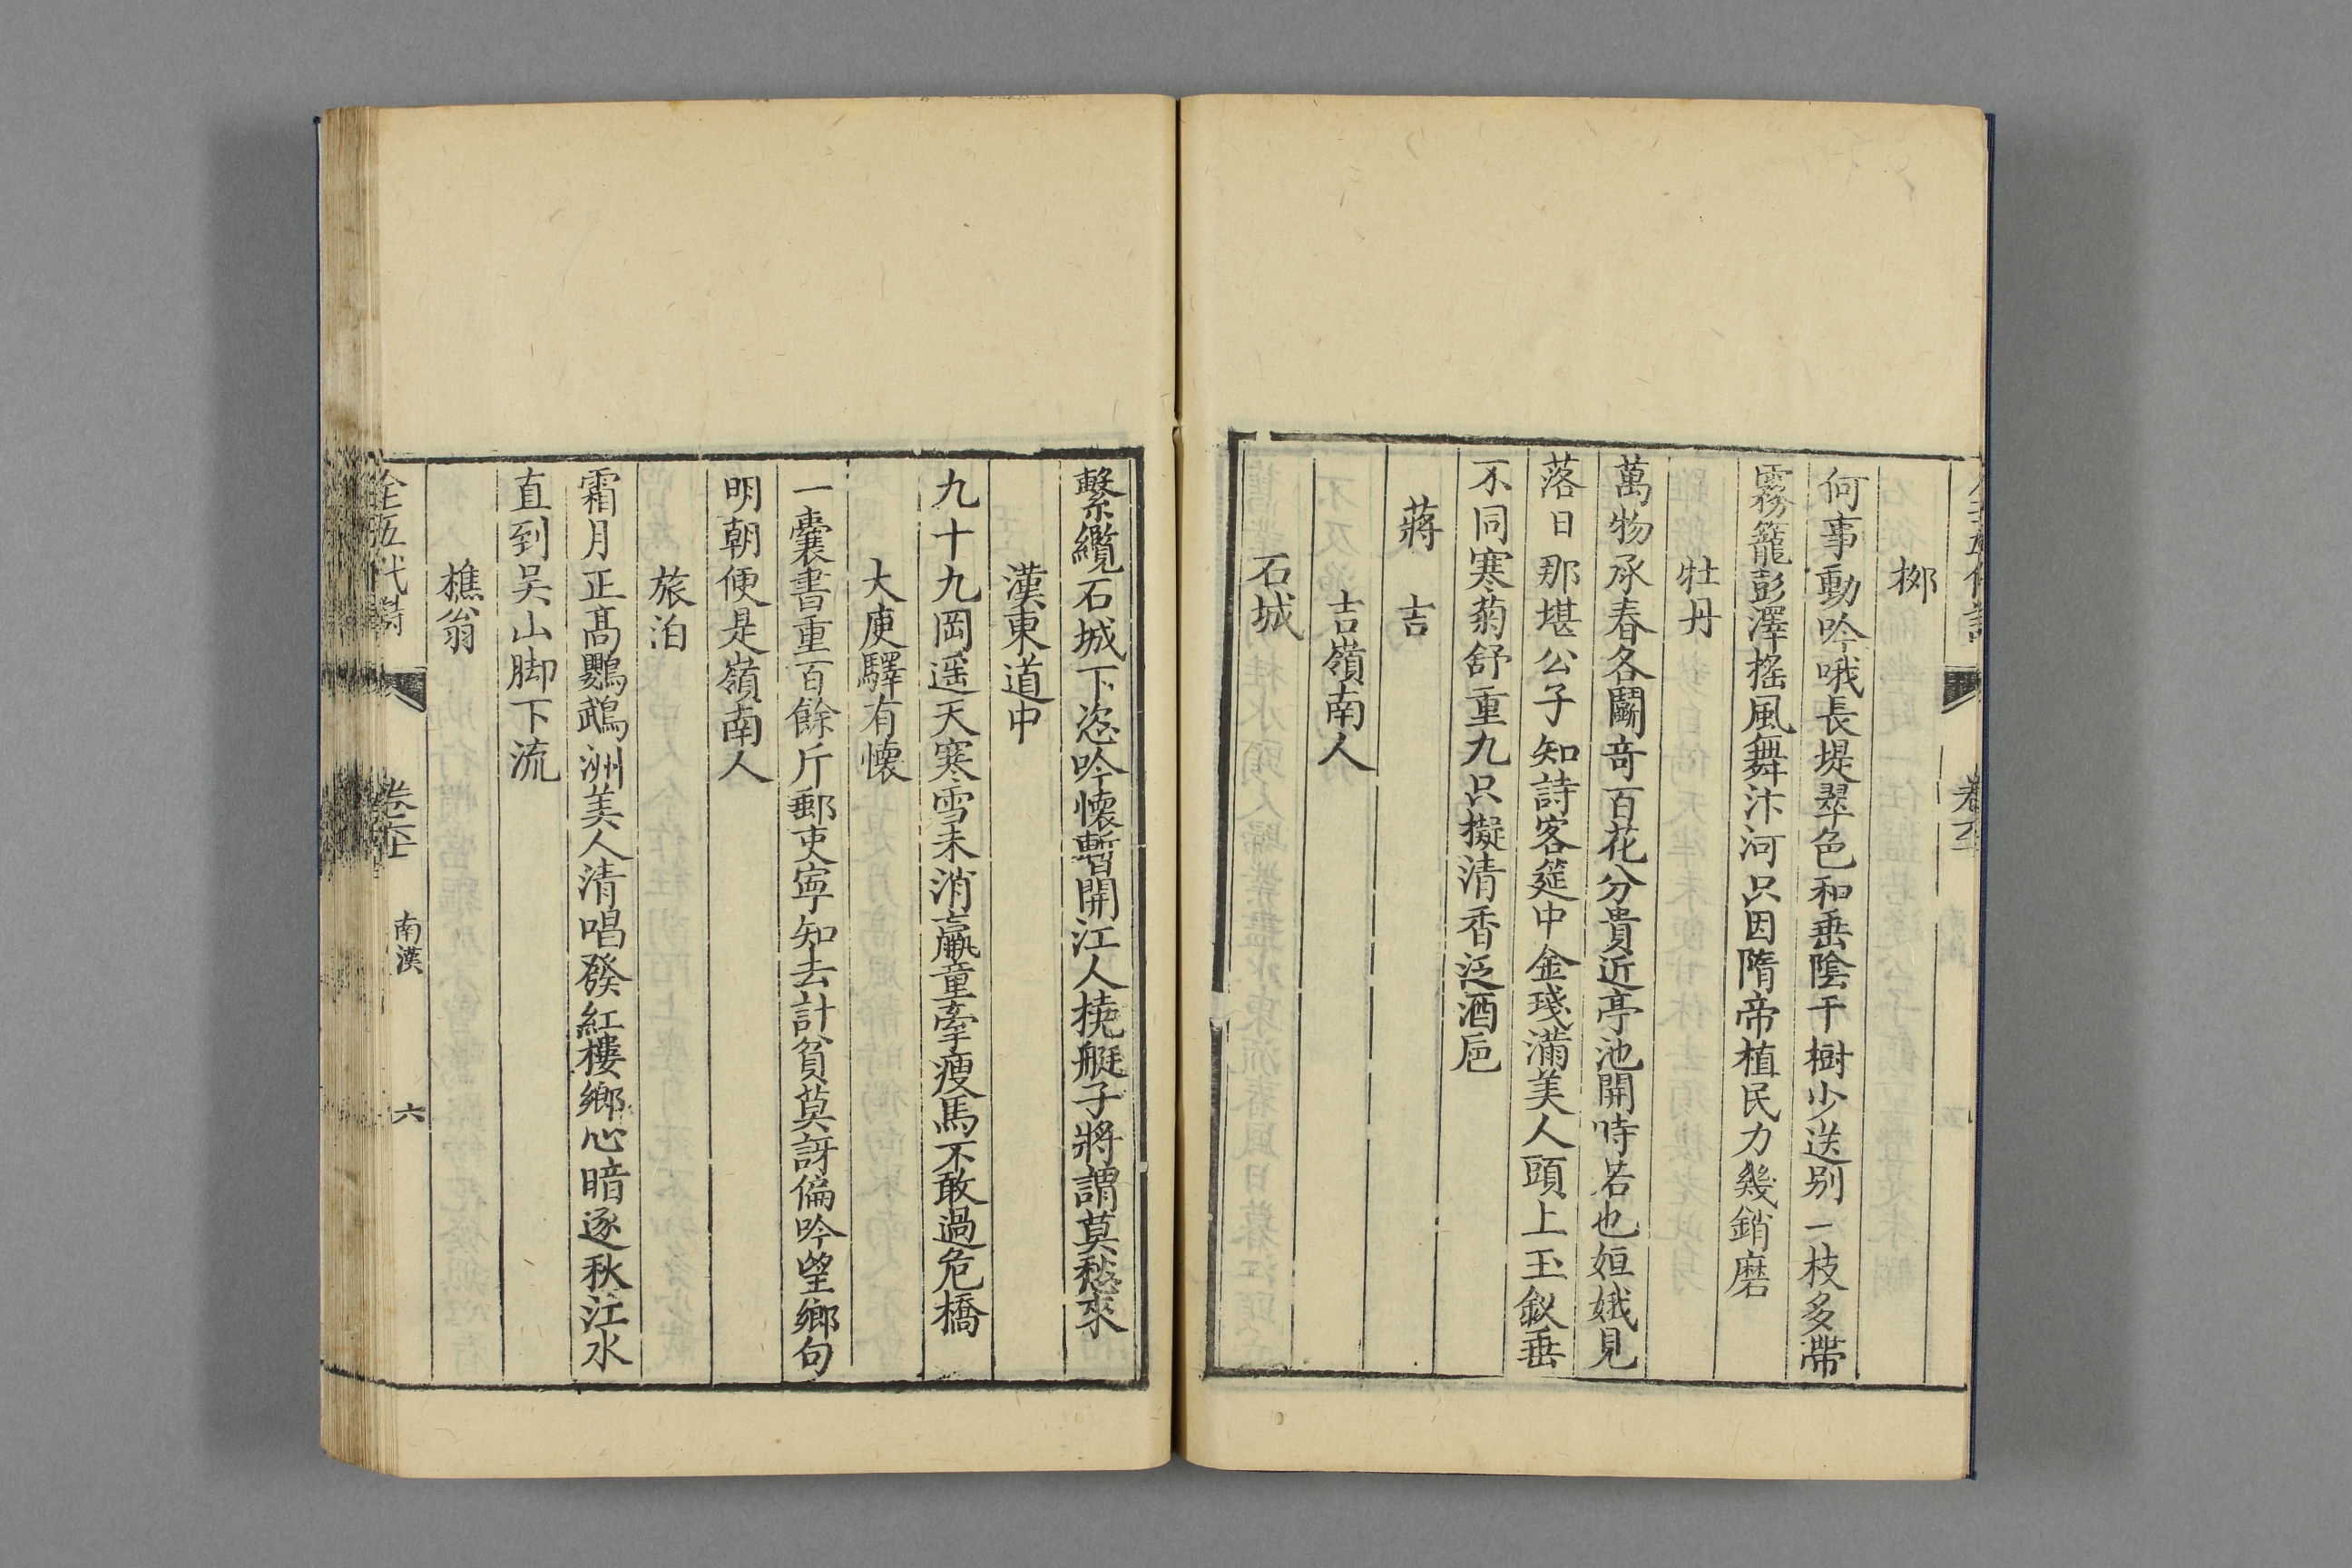 栁
何事動吟哦長堤翠色和垂陰千樹少送别一枝多帶
霧籠彭澤搖風舞汴河只因隋帝植民力幾銷磨
牡丹
萬物承春各鬭竒百花分貴近亭池開時若也姮娥見
落日那堪公子知詩客筵中金琖滿美人頭上玉釵垂
不同寒菊舒重九只擬清香泛酒巵
蔣吉
吉嶺南人
石城
繫纜石城下恣吟懷暫開江人橈艇子將謂莫愁來
漢東道中
九十九岡遥天寒雪未消羸童牽瘦馬不敢過危橋
大庾驛有懷
一囊書重百餘斤郵吏寧知去計貧莫訝偏吟望鄉句
明朝便是嶺南人
旅泊
霜月正高鸚鵡洲美人清唱發紅樓鄉心暗逐秋江水
直到吴山脚下流
樵翁
全五代詩
南漢
六